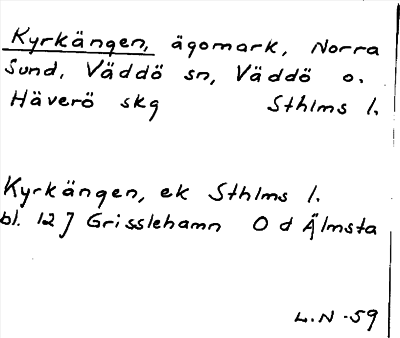 Kyrkängen, ägomark, Norra
Sund, Väddö sn, Väddö o.
Häverö skg Sthlms l.
Kyrkängen, ek Sthlms l.
bl. 12 J Grisslehamn O d Älmsta
L.N -59